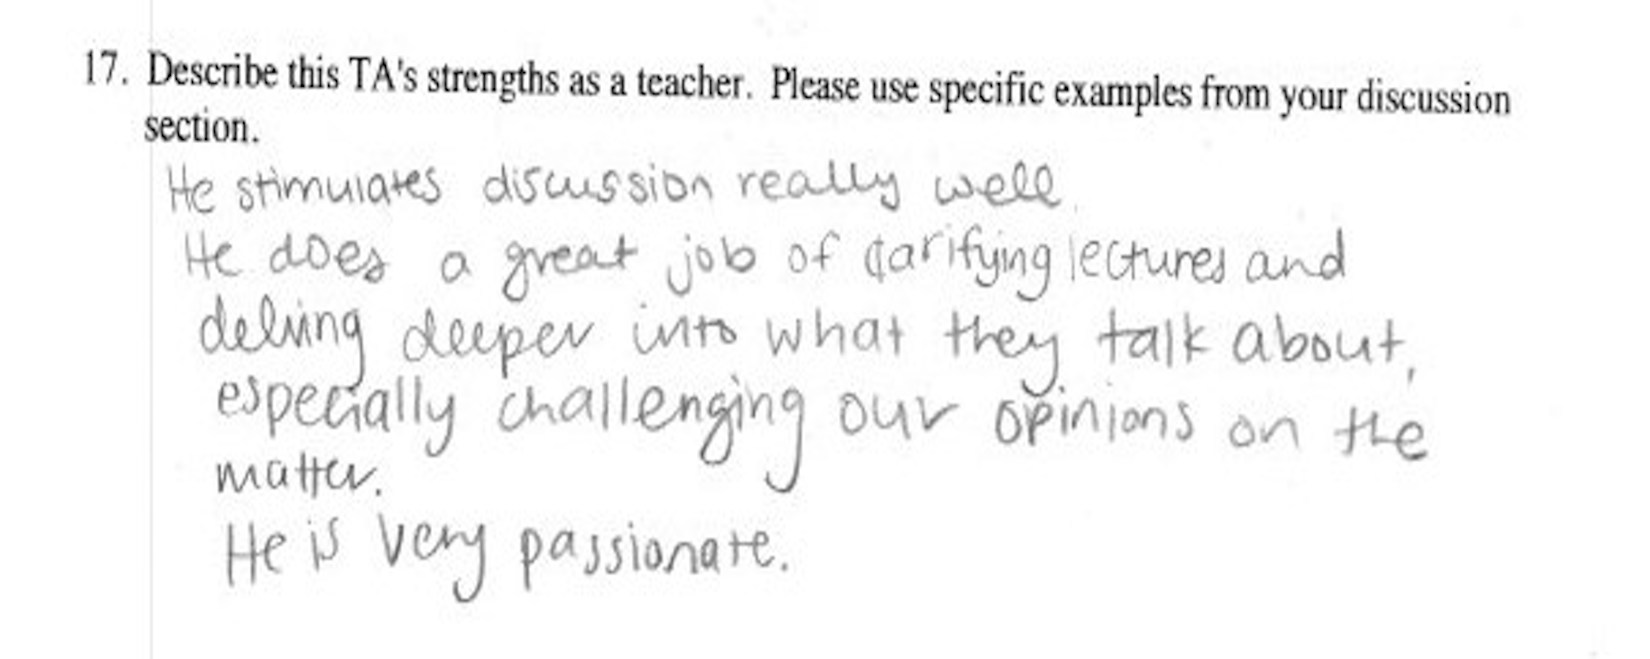 17. Describe this TA's strengths as a teacher. Please use specific examples from your discussion
section.
He stimulates discussion really well.
He does a great job of clarifying lectures and
delving deeper into what they talk about,
especially challenging our opinions on the
matter.
He is very passionate.